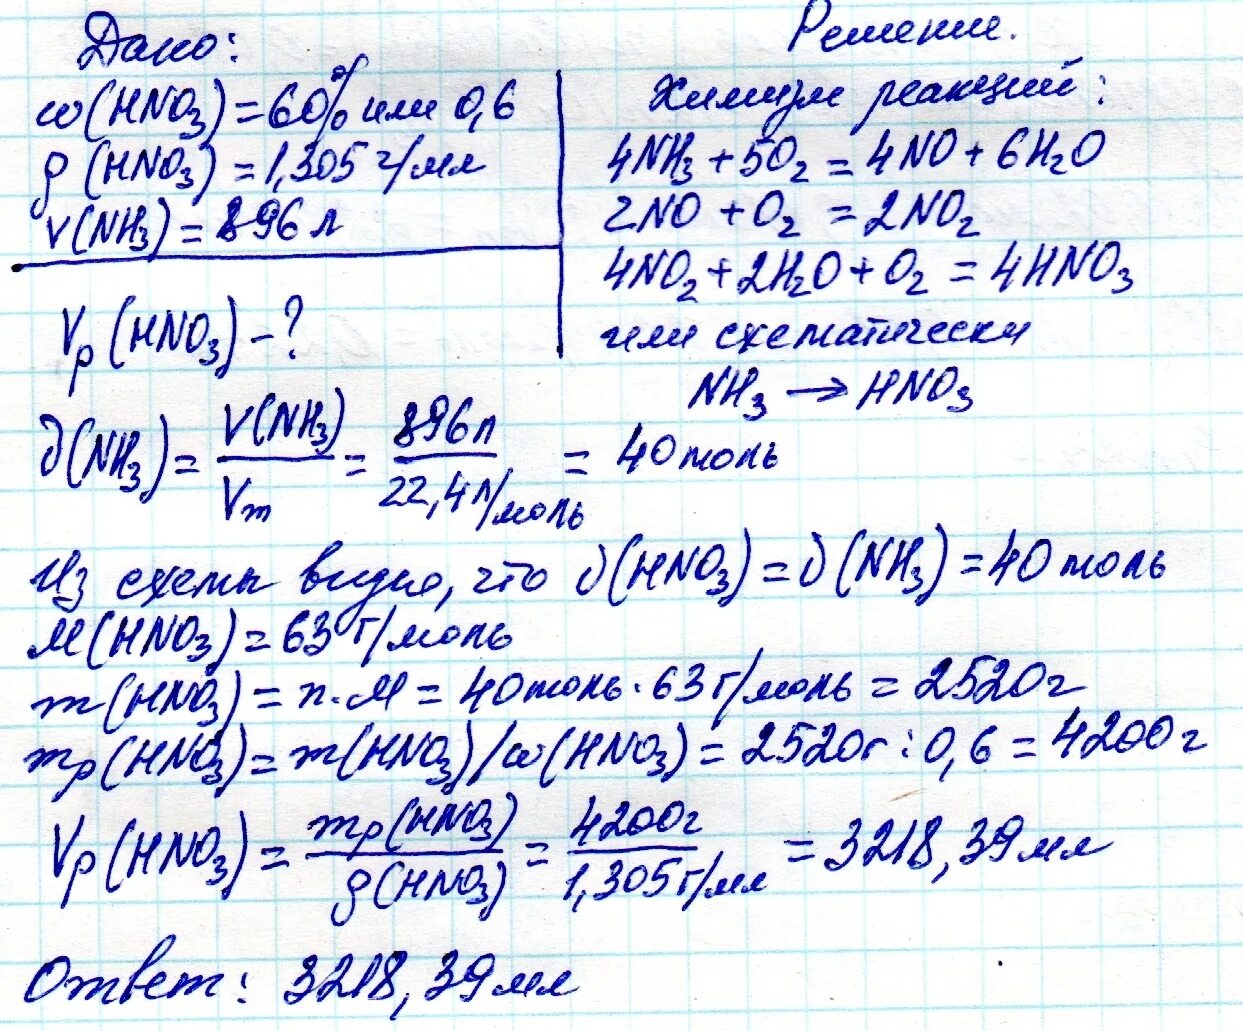 Дано:
ω(HNO₃) = 60% или 0,6
ρ(HNO₃) = 1,305 г/мл
V(NH₃) = 896 л
Vр(HNO₃) - ?
Решение.
Химизм реакций:
4NH₃ + 5O₂ = 4NO + 6H₂O
2NO + O₂ = 2NO₂
4NO₂ + 2H₂O + O₂ = 4HNO₃
или схематически
NH₃ → HNO₃
∂(NH₃) = V(NH₃)/Vm = 896л/22,4л/моль = 40 моль
Из схемы видно, что ∂(HNO₃) = ∂(NH₃) = 40 моль
M(HNO₃) = 63 г/моль
m(HNO₃) = n·M = 40 моль · 63 г/моль = 2520 г
mр(HNO₃) = m(HNO₃)/ω(HNO₃) = 2520г : 0,6 = 4200 г
Vр(HNO₃) = mр(HNO₃)/ρ(HNO₃) = 4200г/1,305 г/мл = 3218,39 мл
Ответ: 3218,39 мл